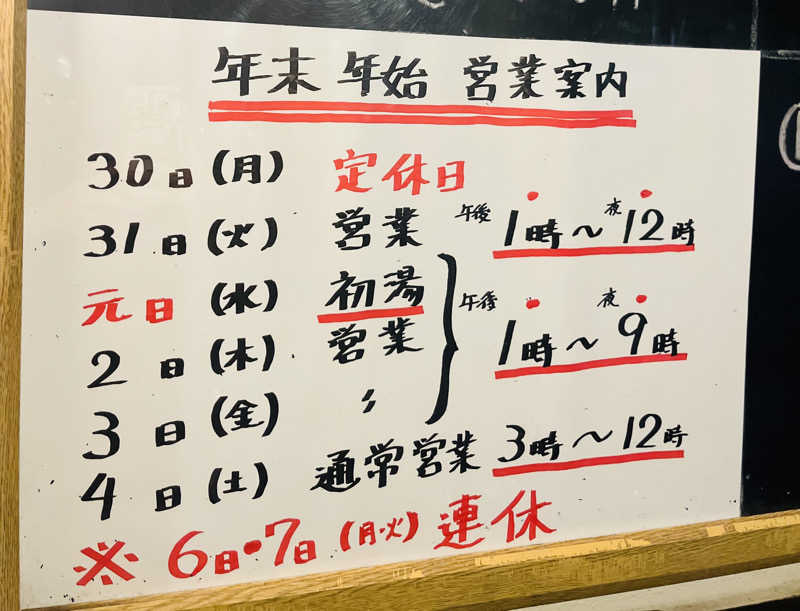 年末年始 営業案内
30日(月) 定休日
31日(火) 営業 午後1時〜夜12時
元日(水) 初湯
2日(木) 営業 午後1時〜夜9時
3日(金) 〃
4日(土) 通常営業 3時〜12時
※6日・7日(月・火)連休